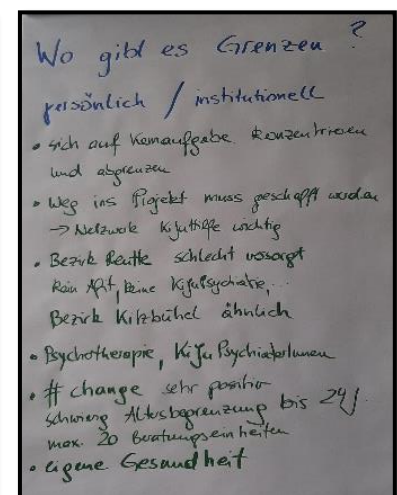 Wo gibt es Grenzen ?
persönlich / institutionell
• sich auf Kernaufgabe konzentrieren
und abgrenzen
• Weg ins Projekt muss geschafft werden
→ Netzwerk Kijuhilfe wichtig
• Bezirk Reutte schlecht versorgt
kein Arzt, keine Kijupsychiatrie,...
Bezirk Kitzbühel ähnlich
• Psychotherapie, KiJu PsychiaterInnen
• # change sehr positiv
schwierig Altersbegrenzung bis 24 J.
max. 20 Beratungseinheiten
• eigene Gesundheit